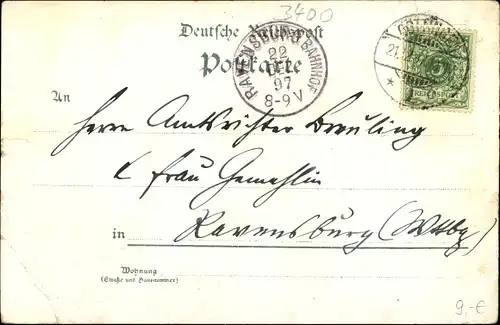 3400
Deutsche Reichspost
Postkarte
RAVENSBURG BAHNHOF
22
97
8-9 V
21.
An
Herrn Amtsrichter Breuling
& Frau Gemahlin
in Ravensburg (Wttbg)
Wohnung
(Straße und Hausnummer)
9,-€